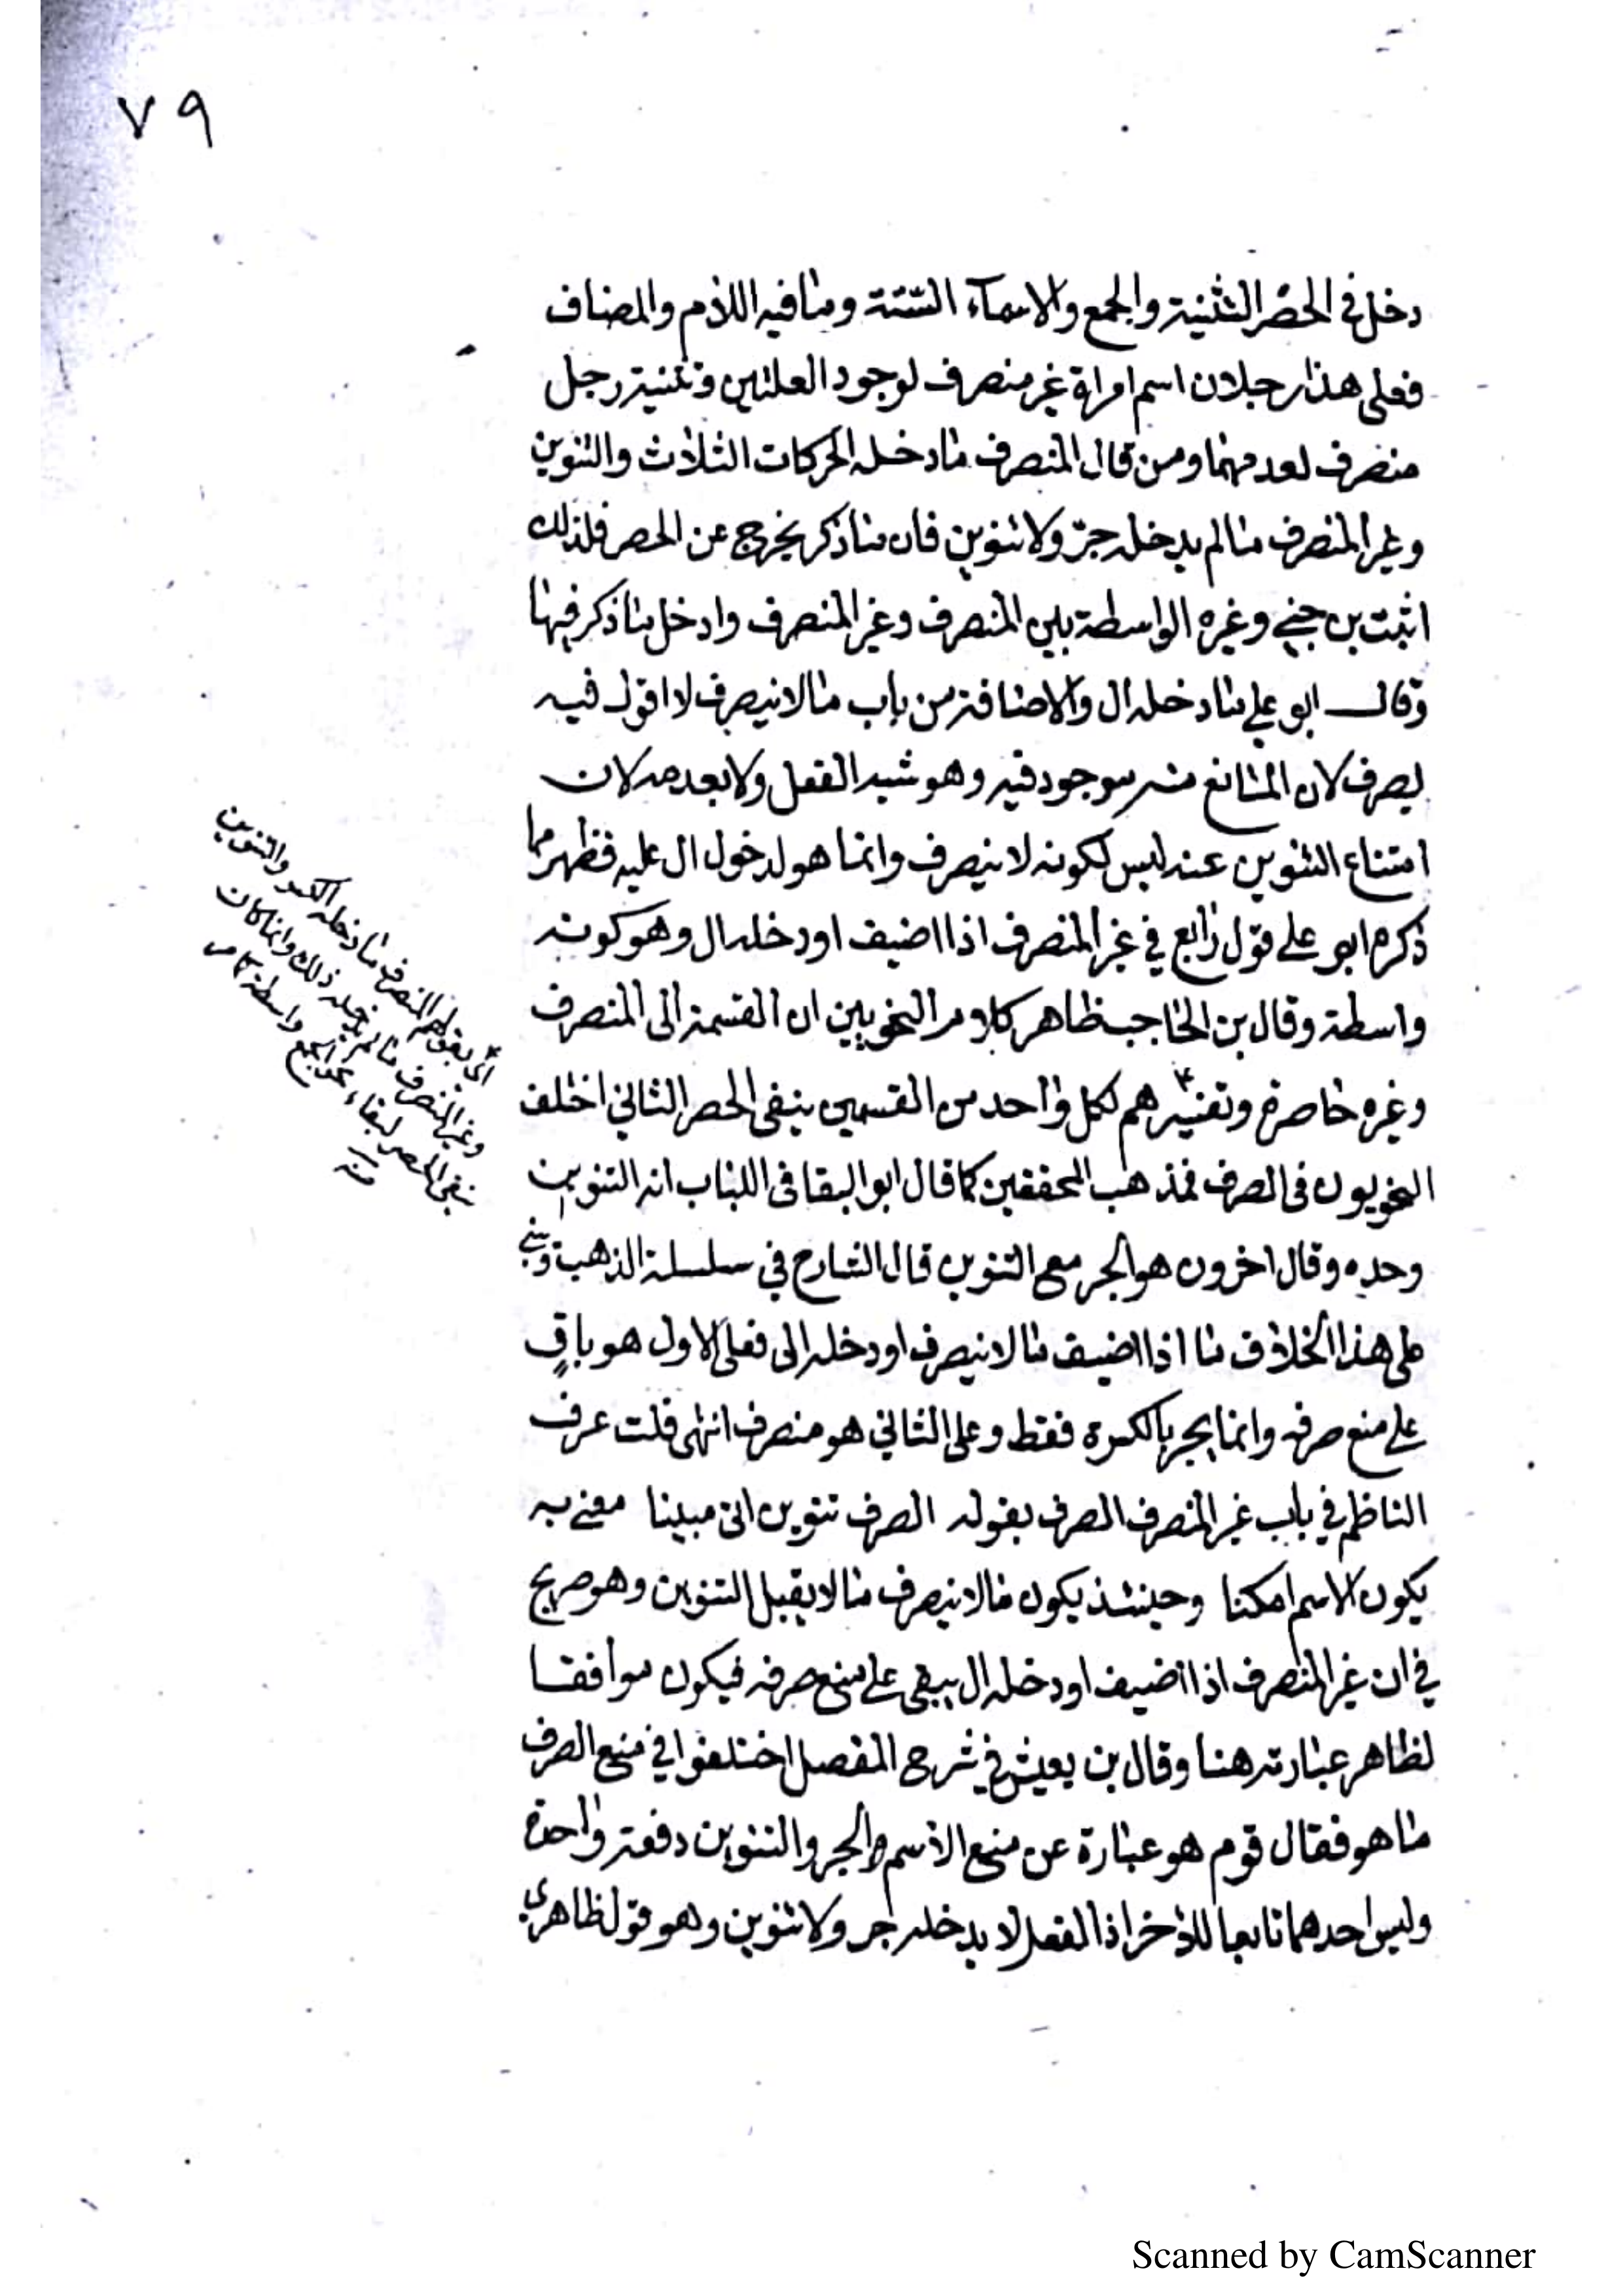 ٧٩
دخل في الحصر التثنية والجمع والاسمآء الستة وما فيه اللام والمضاف
فعلى هذا رجلان اسم امراة غير منصرف لوجود العلتين وتثنية رجل
منصرف لعدمهما ومن قال المنصرف ما دخله الحركات الثلاث والتنوين
وغير المنصرف ما لم يدخله جرّ ولا تنوين فان ما ذكر يخرج عن الحصر فلذلك
اثبت بن جني وغيره الواسطة بين المنصرف وغير المنصرف وادخل ما ذكر فيها
وقال ابو علي ما دخله ال والاضافة من باب ما لا ينصرف لا اقول فيه
يصرف لان المانع منه موجود فيه وهو شبه الفعل ولا بعدمه لان
امتناع التنوين عنه ليس لكونه لا ينصرف وانما هو لدخول ال عليه فظهر مما
ذكره ابو علي قول رابع في غير المنصرف اذا اضيف او دخله ال وهو كونه
واسطة وقال بن الحاجب ظاهر كلام النحويين ان القسمة الى المنصرف
وغيره حاصرة وتفسيرهم لكل واحد من القسمين ينفي الحصر الثاني اختلف
النحويون في الصرف فمذهب المحققين كما قال ابو البقا في اللباب انه التنوين
وحده وقال اخرون هو الجر مع التنوين قال الشارح في سلسلة الذهب وبني
على هذا الخلاف ما اذا اضيف ما لا ينصرف او دخله الى فعلى الاول هو باقٍ
على منع صرفه وانما يجر بالكسرة فقط وعلى الثاني هو منصرف انتهى قلت عرف
الناظم في باب غير المنصرف الصرف بقوله الصرف تنوين اتى مبينا معنى به
يكون الاسم امكنا وحينئذ يكون ما لا ينصرف ما لا يقبل التنوين وهو صريح
في ان غير المنصرف اذا اضيف او دخله ال يبقى على منع صرفه فيكون موافقا
لظاهر عبارته هنا وقال بن يعيش في شرح المفصل اختلفوا في منع الصرف
ما هو فقال قوم هو عبارة عن منع الاسم الجر والتنوين دفعة واحدة
وليس احدهما تابعا للاخر اذ الفعل لا يدخله جر ولا تنوين وهو قول ظاهري
اي بقولهم المنصرف ما دخله الكسر والتنوين
وغير المنصرف ما لم يدخله ذلك وانما كان
ينفي الحصر لبقاء نحو الجمع واسطة كما مر
منه
Scanned by CamScanner